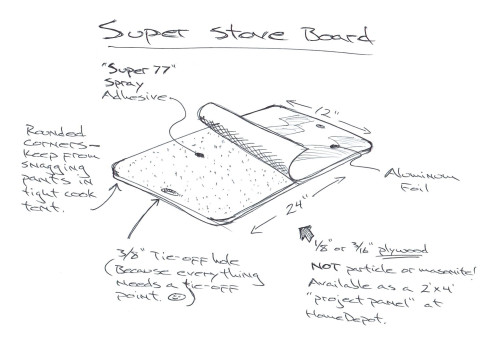 Super Stove Board
"Super 77"
Spray
Adhesive
12"
Rounded
Corners—
Keep from
snagging
pants in
tight cook
tent.
Aluminum
Foil
24"
3/8" Tie-off hole
(Because everything
needs a tie-off
point. ☺)
1/8" or 3/16" plywood
NOT particle or masonite!
Available as a 2'x4'
"project panel" at
Home Depot.